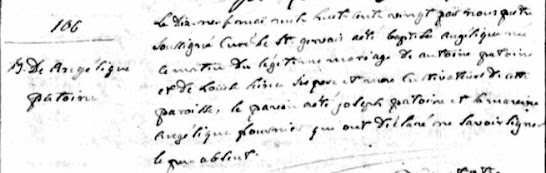 106
B. De Angelique
patoine
Le dix neuf mai mil huit cent vingt par nous prêtre
soussigné curé de St. gervais a été baptisée angélique née
le matin du légitime mariage de antoine patoine
et de Louise ses père et mère cultivateurs de cette
paroisse, le parain a été joseph patoine et la maraine
angélique fournier qui ont déclaré ne savoir signer
le père absent.